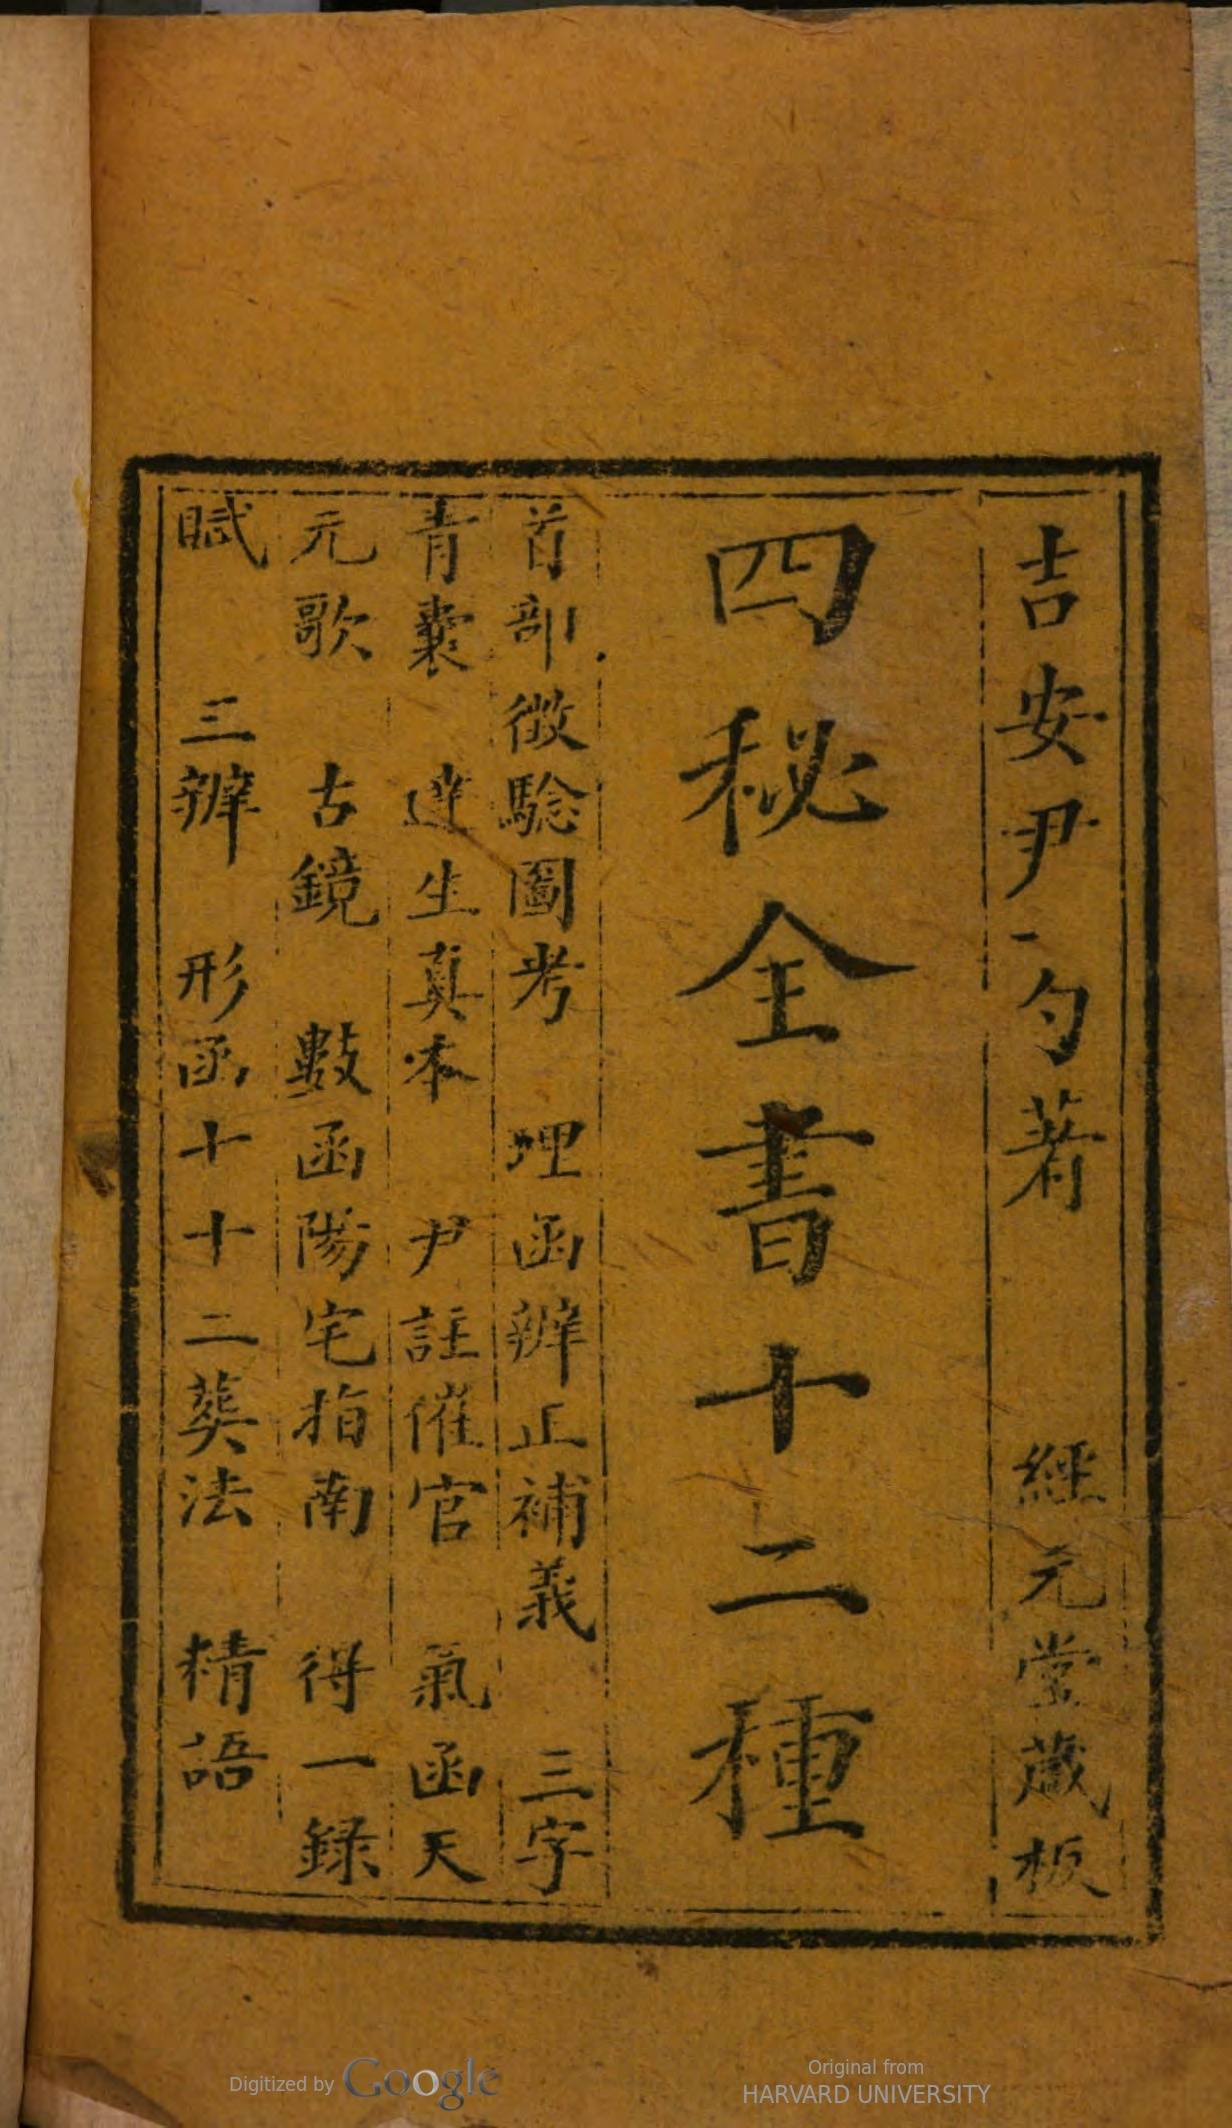 吉安尹一勺著　經元堂藏板
四秘全書十二種
首部徴驗圖考　理函辨正補義　三字
青囊　達生真本　尹註催官　氣函天
元歌　古鏡　數函陽宅指南　得一録
賦　三辨　形函十十二葬法　精語
Digitized by Google
Original from
HARVARD UNIVERSITY